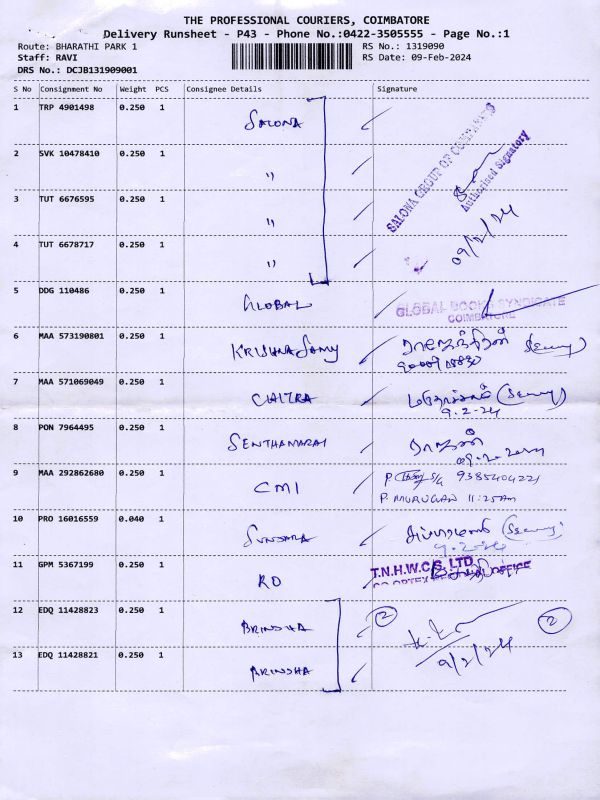 THE PROFESSIONAL COURIERS, COIMBATORE
Delivery Runsheet - P43 - Phone No.:0422-3505555 - Page No.:1
Route: BHARATHI PARK 1 RS No.: 1319090
Staff: RAVI RS Date: 09-Feb-2024
DRS No.: DCJB131909001
S No Consignment No Weight PCS Consignee Details Signature
1 TRP 4901498 0.250 1 SALONA
SALONA GROUP OF COMPANIES
Authorised Signatory
09/2/24
2 SVK 10478410 0.250 1 "
3 TUT 6676595 0.250 1 "
4 TUT 6678717 0.250 1 "
5 DDG 110486 0.250 1 GLOBAL GLOBAL BOOKS SYNDICATE
COIMBATORE
6 MAA 573190801 0.250 1 KRISHNASAMY
7 MAA 571069049 0.250 1 CHITRA
9.2.24
8 PON 7964495 0.250 1 SENTHAMARAI
09.2.2024
9 MAA 292862680 0.250 1 CMI 9385404221
P. MURUGAN 11:25AM
10 PRO 16016559 0.040 1 SUNDARA
9.2.24
11 GPM 5367199 0.250 1 RO T.N.H.W.C.S. LTD
CO-OPTEX REGIONAL OFFICE
12 EDQ 11428823 0.250 1 BRINDHA 2 2
9/2/24
13 EDQ 11428821 0.250 1 BRINDHA